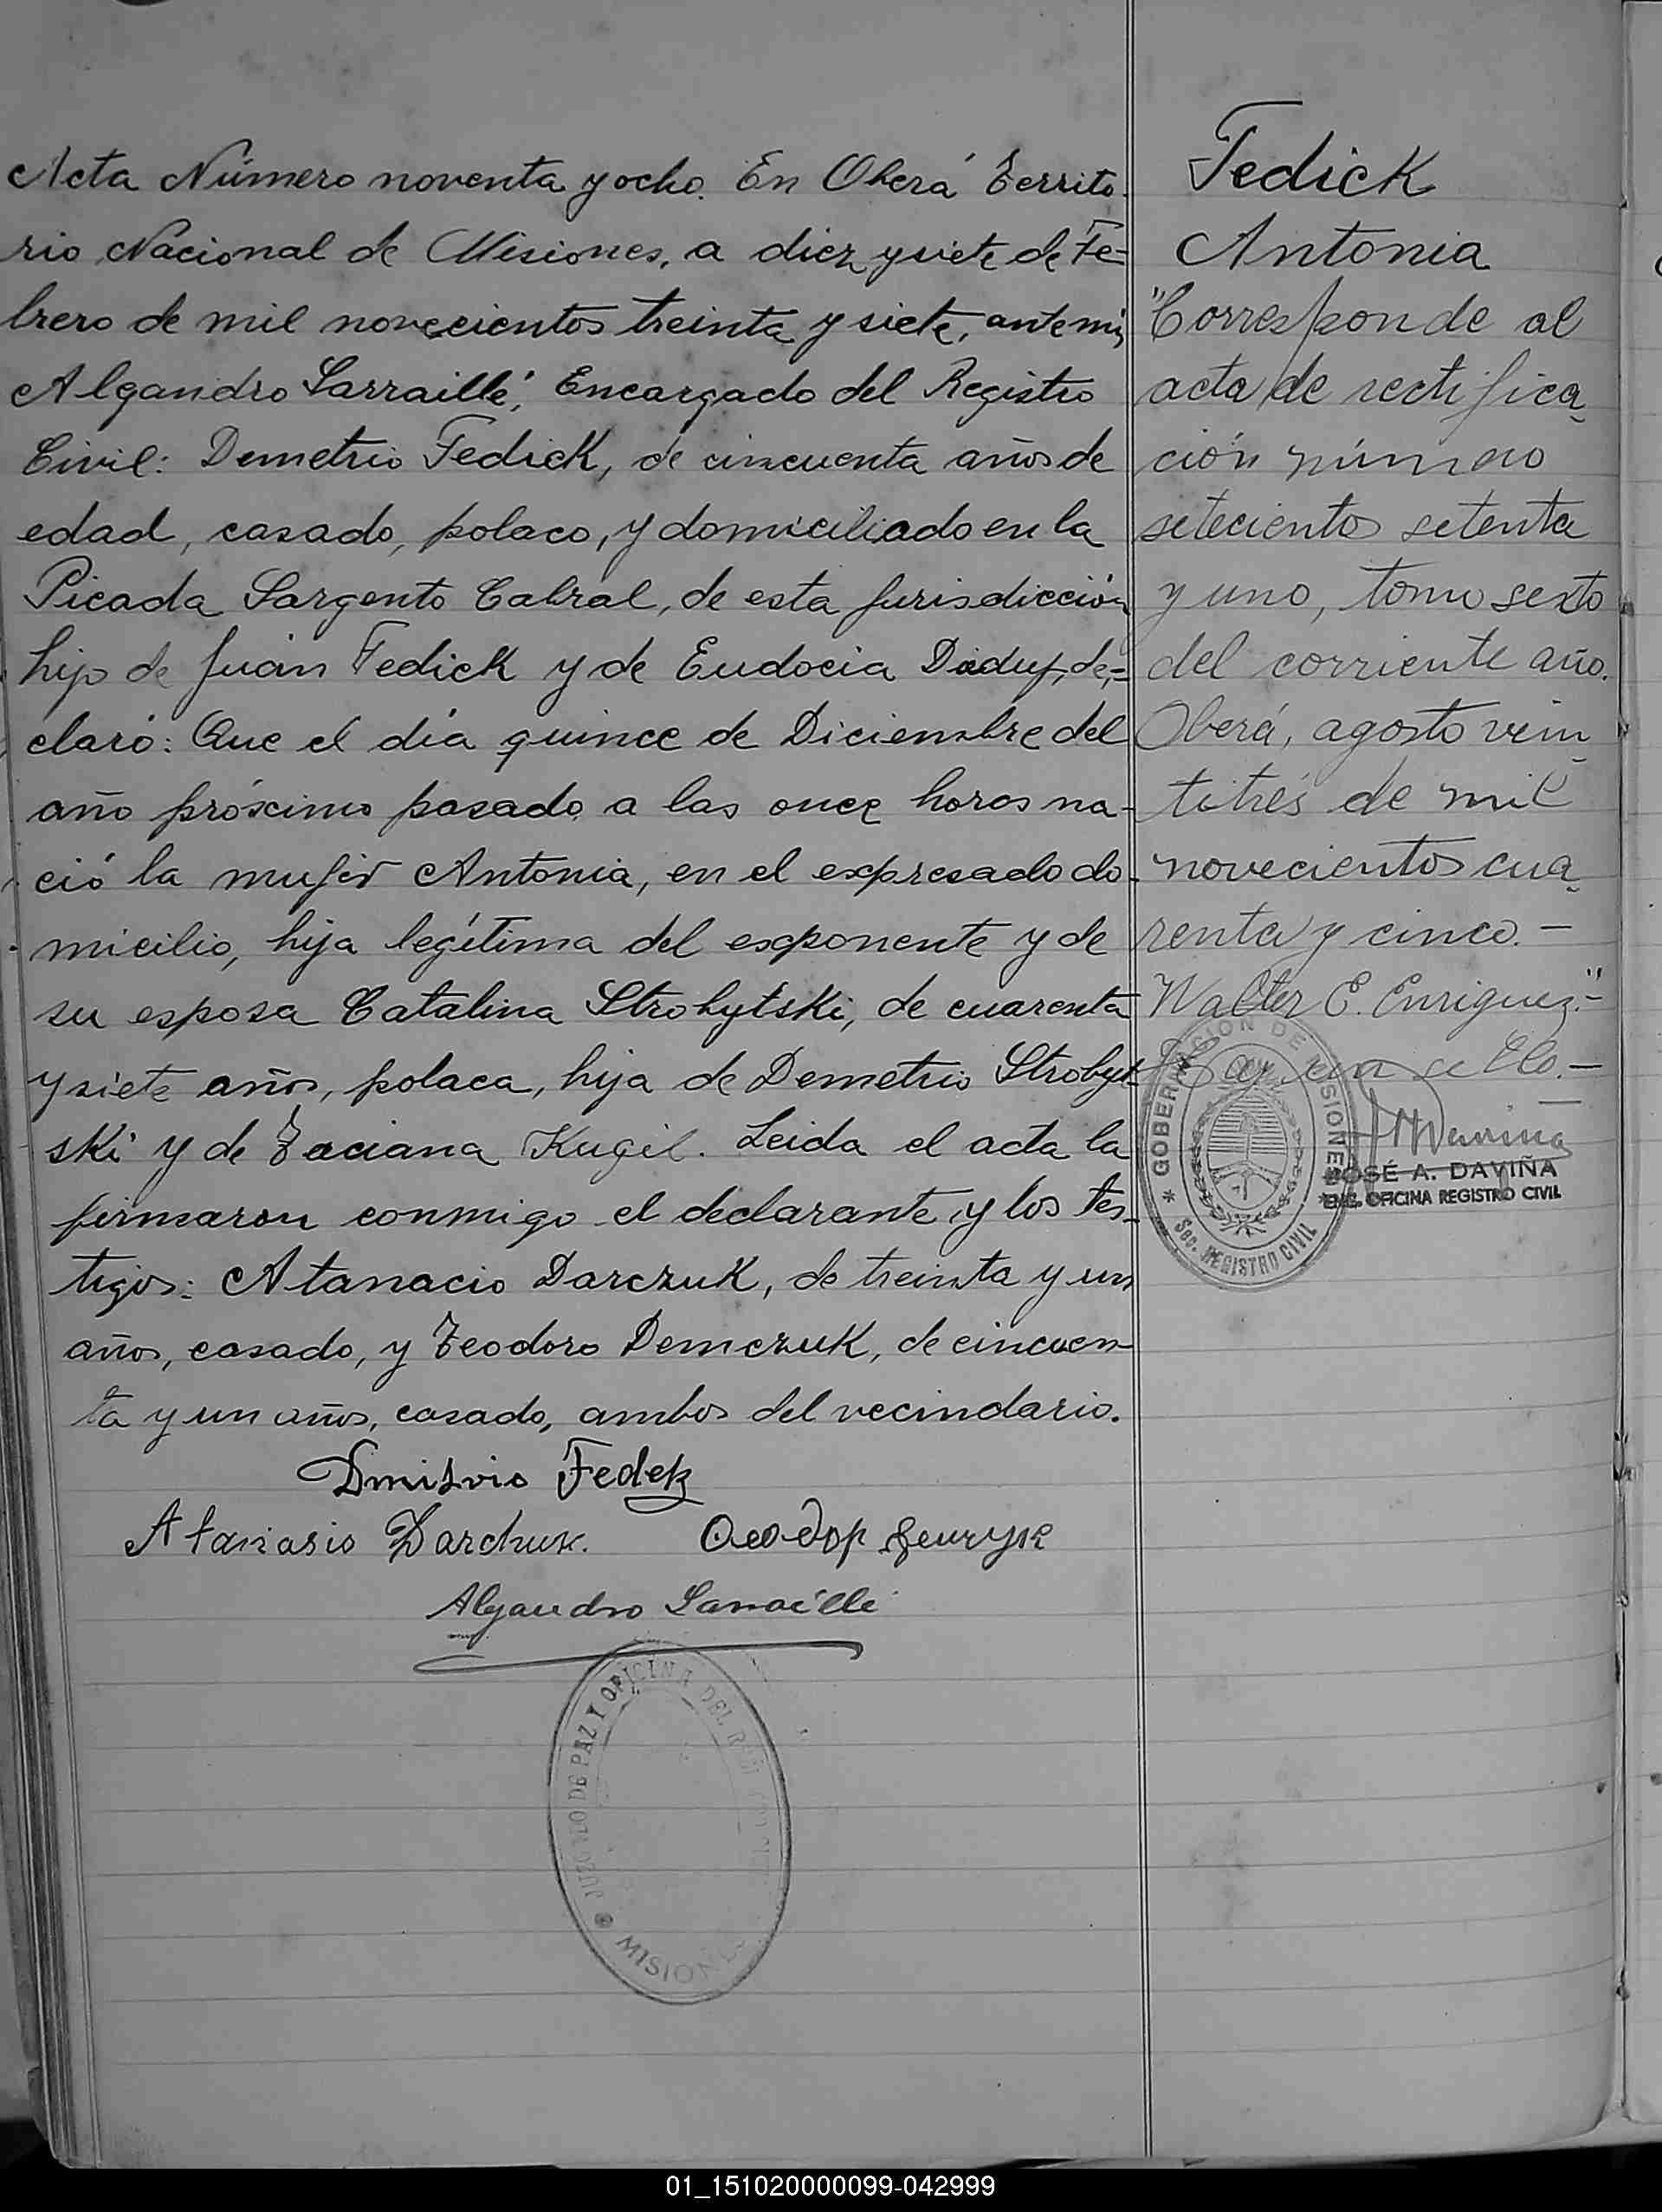 Acta Número noventa y ocho. En Oberá Territo-
rio Nacional de Misiones, a diez y siete de Fe-
brero de mil novecientos treinta y siete, ante mi,
Alejandro Sarraillé, Encargado del Registro
Civil: Demetrio Fedick, de cincuenta años de
edad, casado, polaco, y domiciliado en la
Picada Sargento Cabral, de esta jurisdicción
hijo de Juan Fedick y de Eudocia de-
claró: Que el día quince de Diciembre del
año próximo pasado a las once horas na-
ció la mujer Antonia, en el expresado do-
micilio, hija legítima del exponente y de
su esposa Catalina Strobytski, de cuarenta
y siete años, polaca, hija de Demetrio Strobyt-
ski y de Taciana Kugil. Leida el acta la
firmaron conmigo el declarante y los tes-
tigos: Atanacio Darczuk, de treinta y un
años, casado, y Teodoro Demczuk, de cincuen-
ta y un años, casado, ambos del vecindario.
Fedek
Atanasio Darchuk. Ѳеодор
Alejandro Sarraillé
JUZGADO DE PAZ Y OFICINA DEL
MISIONES
Fedick
Antonia
"Corresponde al
acta de rectifica-
ción número
setecientos setenta
y uno, tomo sexto
del corriente año.
Oberá, agosto vein-
titrés de mil
novecientos cua-
renta y cinco.-
Walter E. Enriquez."-
Hay un sello.-
GOBERNACION DE MISIONES
Sec. REGISTRO CIVIL
JOSÉ A. DAVIÑA
ENC. OFICINA REGISTRO CIVIL
01_151020000099-042999